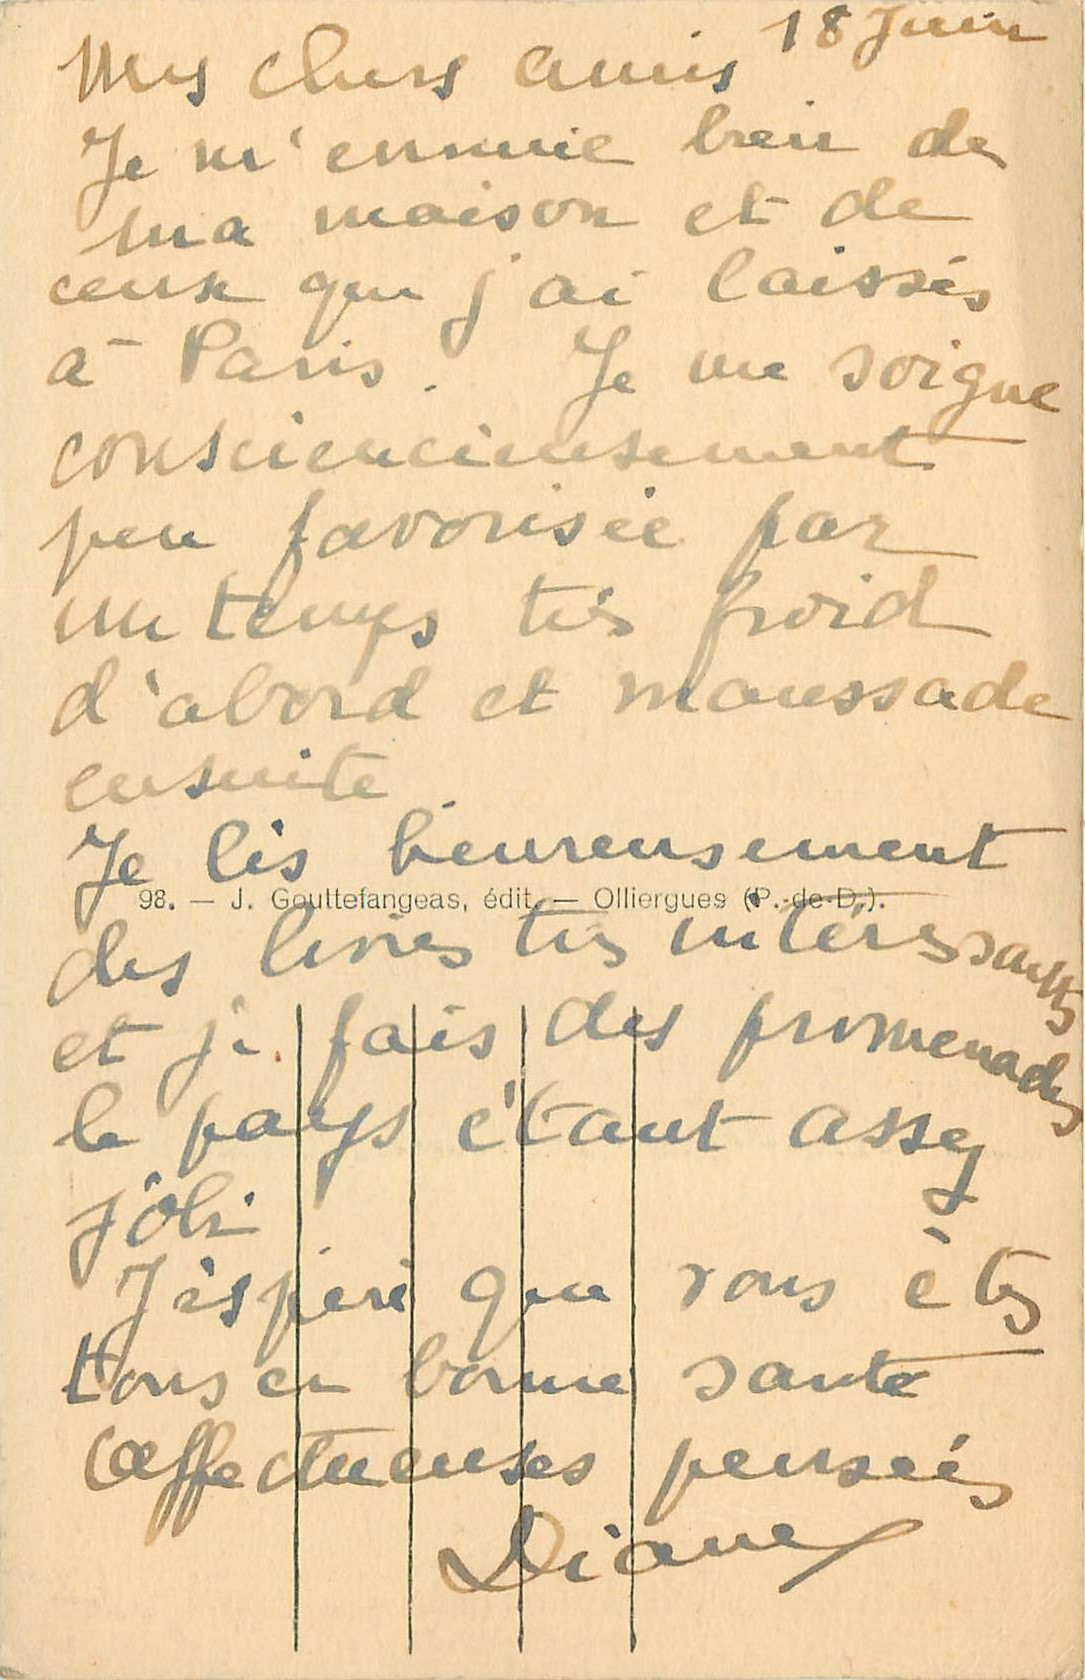 18 Juin
Mes chers amis
Je m'ennuie bien de
ma maison et de
ceux que j'ai laissés
à Paris. Je me soigne
consciencieusement
peu favorisée par
un temps très froid
d'abord et maussade
ensuite
Je lis heureusement
98. — J. Gouttefangeas, édit. — Olliergues (P.-de-D.).
des livres très intéressants
et je fais des promenades
le pays étant assez
joli
J'espère que vous êtes
tous en bonne santé
affectueuses pensées
Diane